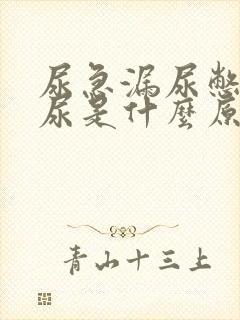 尿急漏尿憋
尿是什麼原
青山十三上